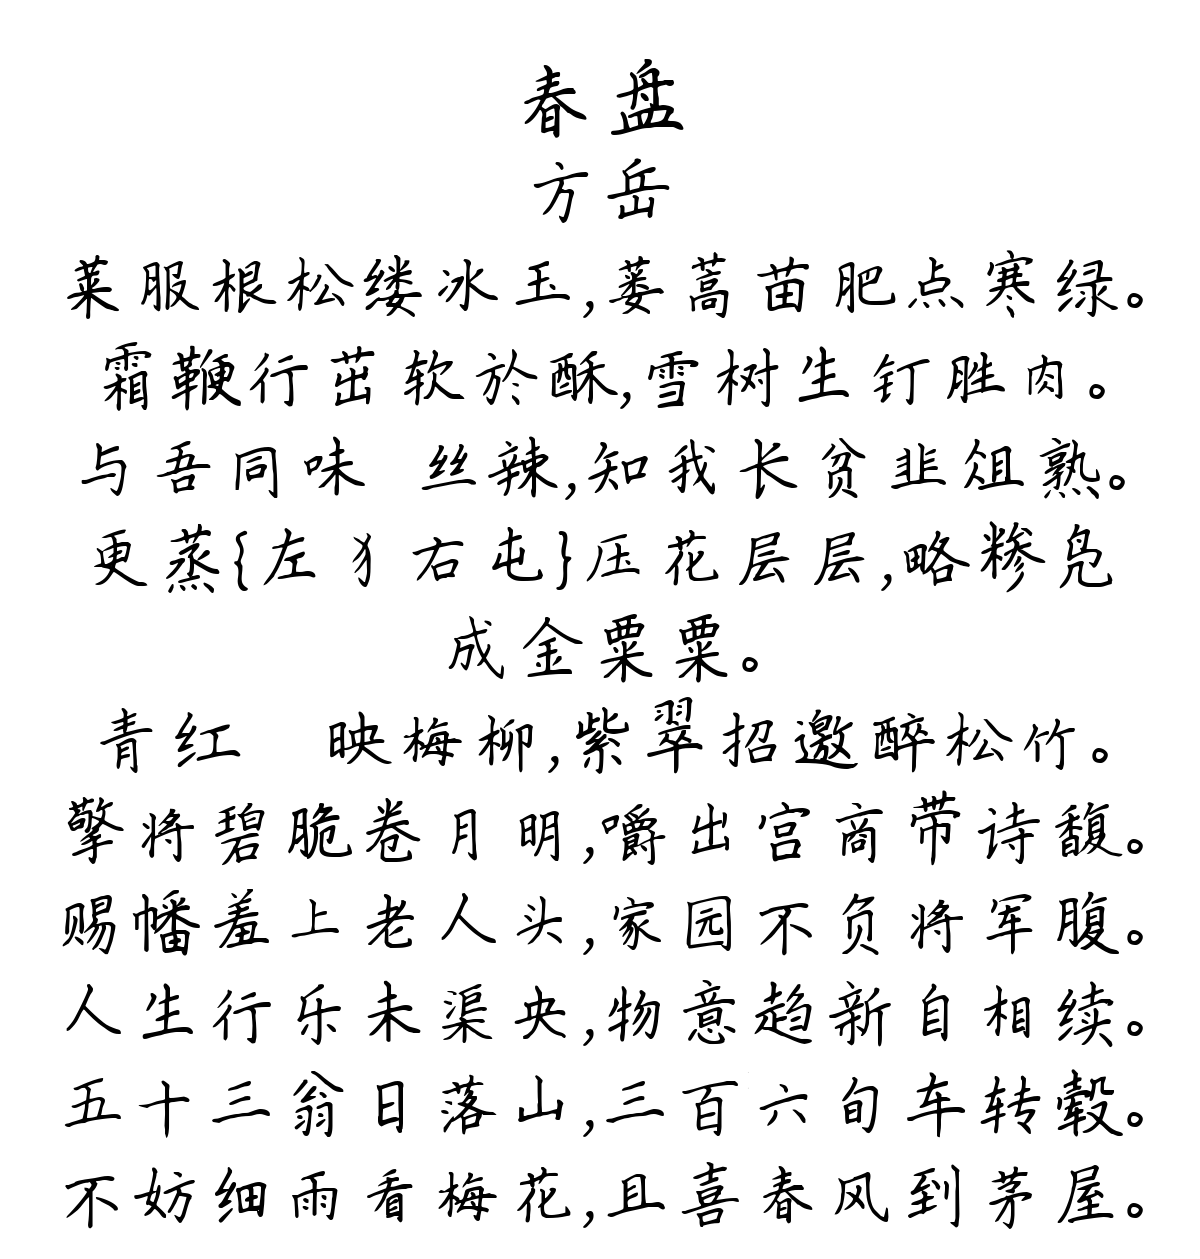 春盘
方岳
莱服根松缕冰玉,蒌蒿苗肥点寒绿。
霜鞭行茁软於酥,雪树生钉胜肉。
与吾同味 丝辣,知我长贫韭俎熟。
更蒸{左犭右屯}压花层层,略糁凫
成金粟粟。
青红 映梅柳,紫翠招邀醉松竹。
擎将碧脆卷月明,嚼出宫商带诗馥。
赐幡羞上老人头,家园不负将军腹。
人生行乐未渠央,物意趋新自相续。
五十三翁日落山,三百六旬车转毂。
不妨细雨看梅花,且喜春风到茅屋。